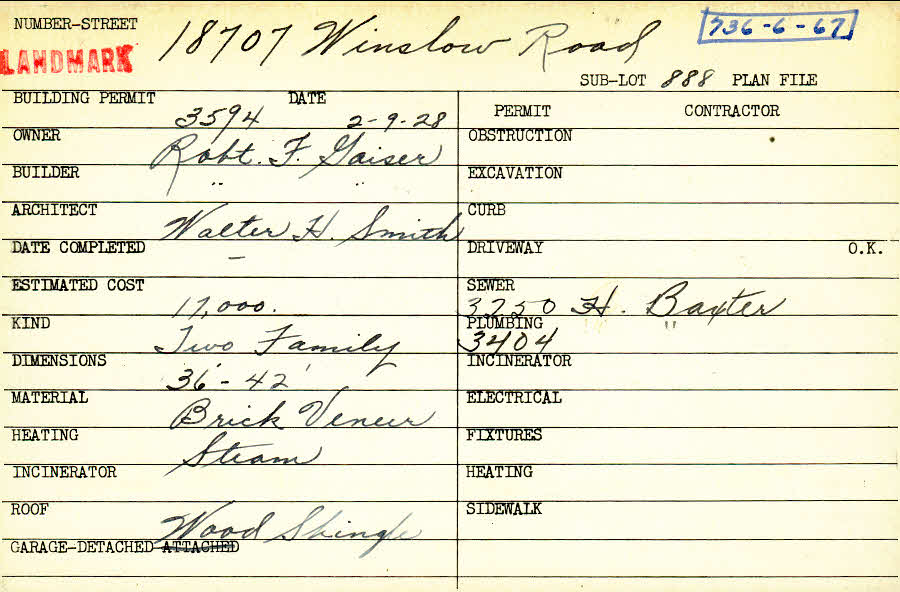 NUMBER-STREET 18707 Winslow Road 736-6-67
LANDMARK
SUB-LOT 888 PLAN FILE
BUILDING PERMIT 3594 DATE 2-9-28
PERMIT CONTRACTOR
OWNER Robt. F. Gaiser
OBSTRUCTION
BUILDER " "
EXCAVATION
ARCHITECT Walter H. Smith
CURB
DATE COMPLETED –
DRIVEWAY O.K.
ESTIMATED COST 17,000.
SEWER 3750 H. Baxter
KIND Two Family
PLUMBING 3404 "
DIMENSIONS 36' - 42'
INCINERATOR
MATERIAL Brick Veneer
ELECTRICAL
HEATING Steam
FIXTURES
INCINERATOR
HEATING
ROOF Wood Shingle
SIDEWALK
GARAGE-DETACHED-ATTACHED